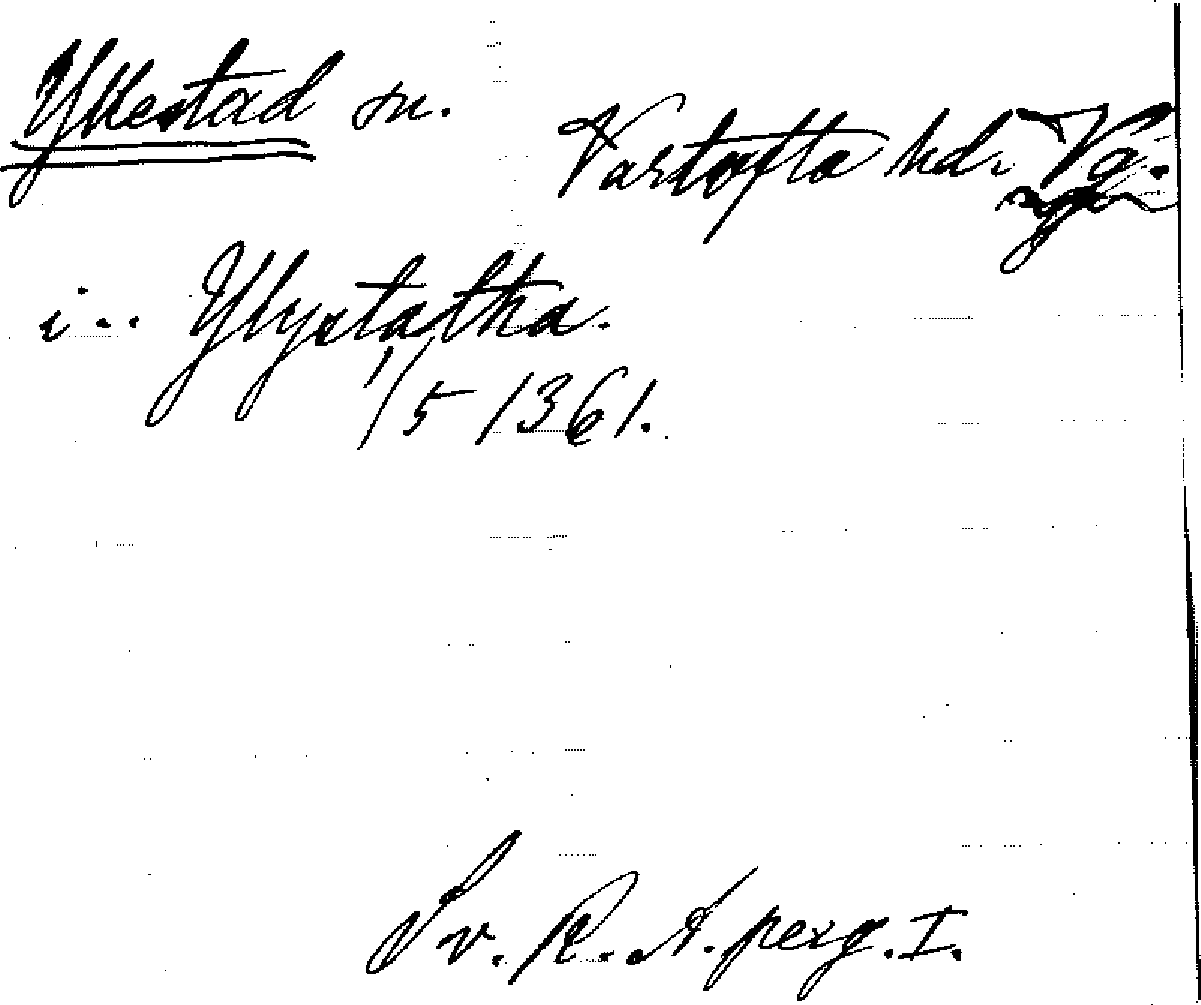 Yllestad sn. Vartofta hd. Vg.
i.. Ylystatha.
1/5 1361.
Sv. R. A. perg. I.